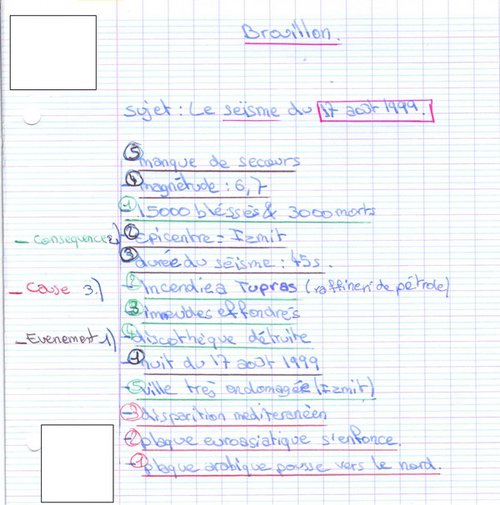 Brouillon.
sujet : Le seïsme du 17 août 1999.
5 manque de secours
4 magnétude : 6,7
1 15000 bléssés & 3000 morts
- Consequence 2) 2 Epicentre = Izmit
3 durée du séisme : 45s.
- Cause 3.) 2 incendie a Tupras (raffineri de pétrole)
3 imeubles effondrés
- Evenement 1) 4 discothèque détruite
1 nuit du 17 août 1999
5 ville très endomagée (Izmit)
3 disparition méditeranéen
2 plaque euroasiatique s'enfonce.
1 plaque arabique pousse vers le nord.